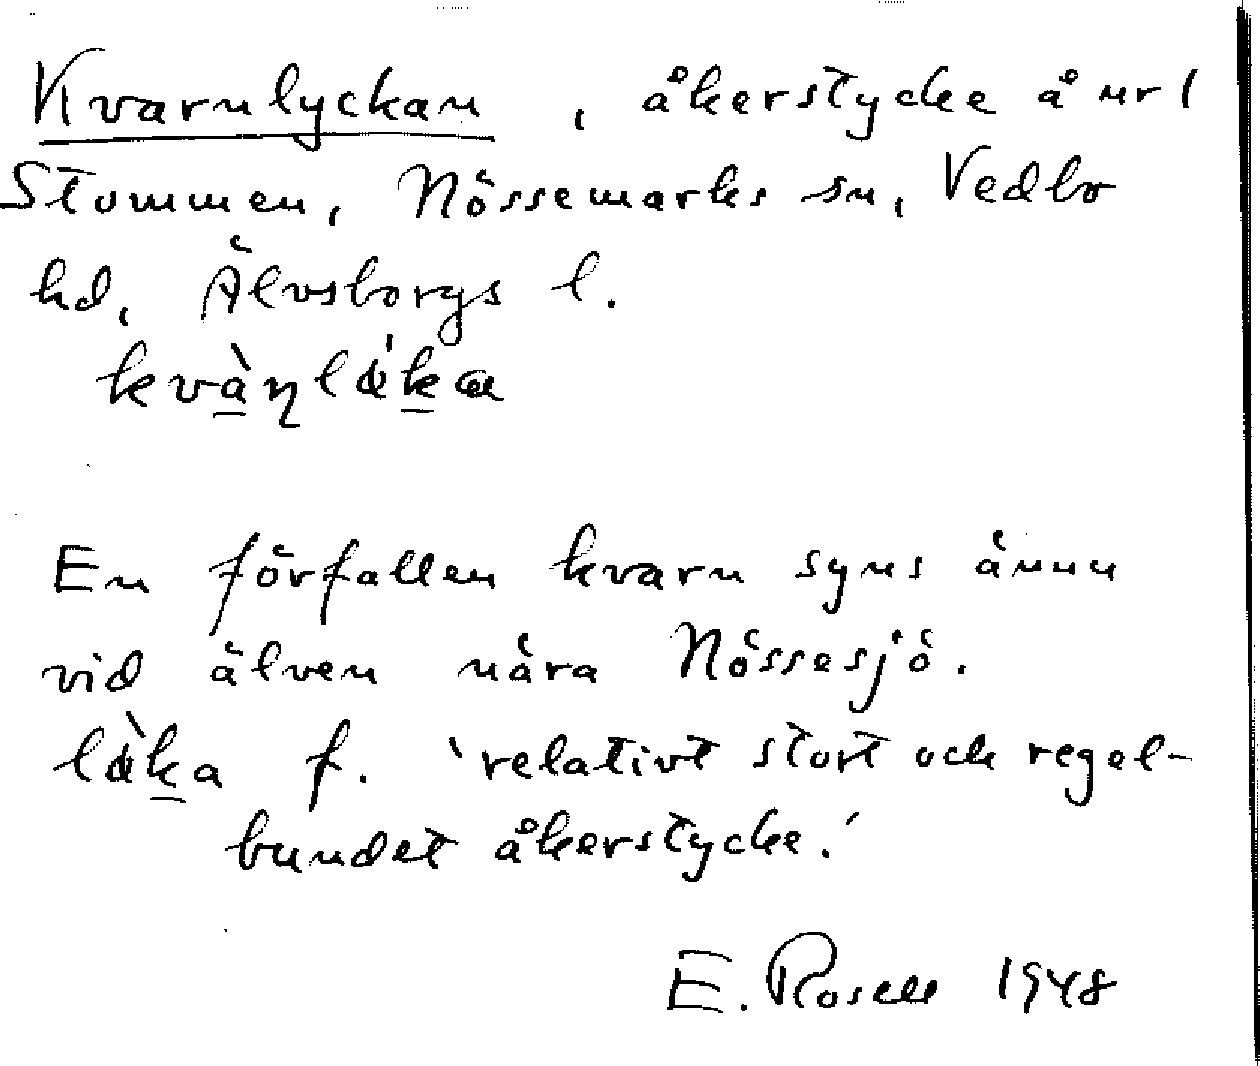 Kvarnlyckan, åkerstycke å nr 1
Stommen, Nössemarks sn, Vedbo
hd, Älvsborgs l.
En förfallen kvarn syns ännu
vid älven nära Nössesjö.
f. 'relativt stort och regel-
bundet åkerstycke.'
E. Rosell 1948